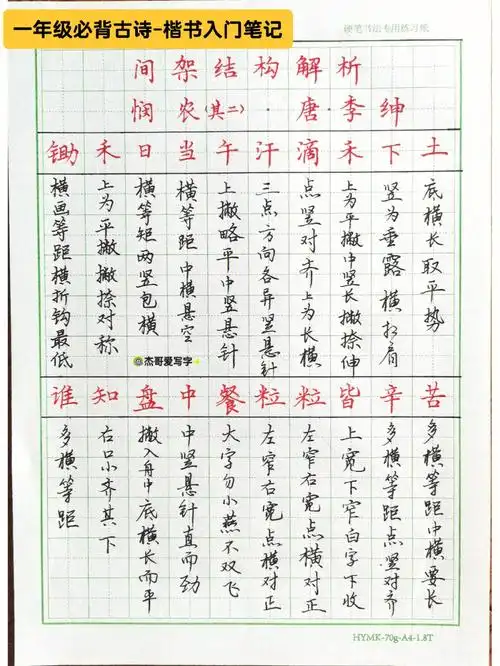 一年级必背古诗-楷书入门笔记
硬笔书法专用练习纸
间架结构解析
悯农(其二)·唐·李绅
锄禾日当午汗滴禾下土
横画等距横折钩最低
上为平撇撇捺对称
横等矩两竖包横
横等距中横悬空
上撇略平中竖悬针
三点方向各异竖悬针
点竖对齐上为长横
上为平撇中竖长撇捺伸
竖为垂露横扛肩
底横长取平势
杰哥爱写字
谁知盘中餐粒粒皆辛苦
多横等距
右口小齐其下
撇入舟中底横长而平
中竖悬针直而劲
大字勿小燕不双飞
左窄右宽点横对正
左窄右宽点横对正
上宽下窄白字下收
多横等距点竖对齐
多横等距中横要长
HYMK-70g-A4-1.8T